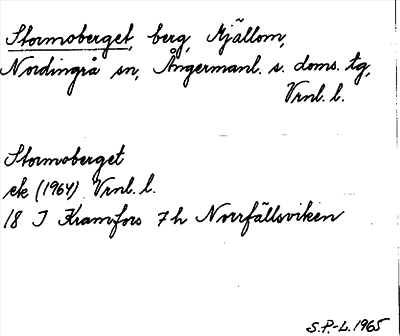 Stormoberget, berg, Mjällom,
Nordingrå sn, Ångermanl. s. doms. tg,
Vrnl. l.
Stormoberget
ek (1964) Vrnl. l.
18 I Kramfors 7 h Norrfällsviken
S.P.-L. 1965